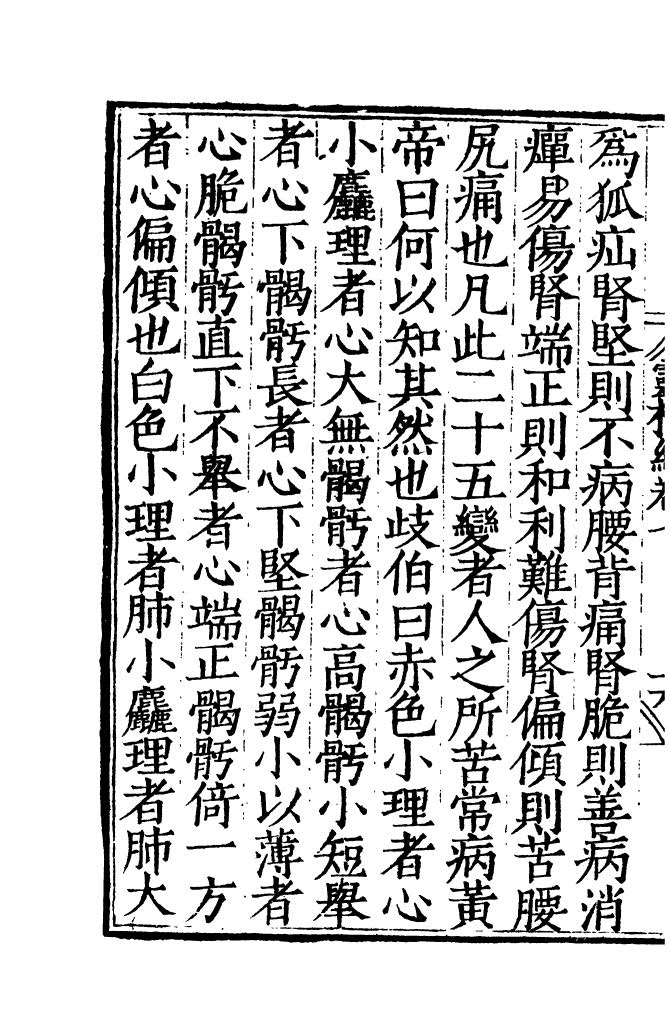 為狐疝腎堅則不病腰背痛腎脆則善病消
癉易傷腎端正則和利難傷腎偏傾則苦腰
尻痛也凡此二十五變者人之所苦常病黃
帝曰何以知其然也歧伯曰赤色小理者心
小麤理者心大無𩩲骬者心高𩩲骬小短舉
者心下𩩲骬長者心下堅𩩲骬弱小以薄者
心脆𩩲骬直下不舉者心端正𩩲骬倚一方
者心偏傾也白色小理者肺小麤理者肺大